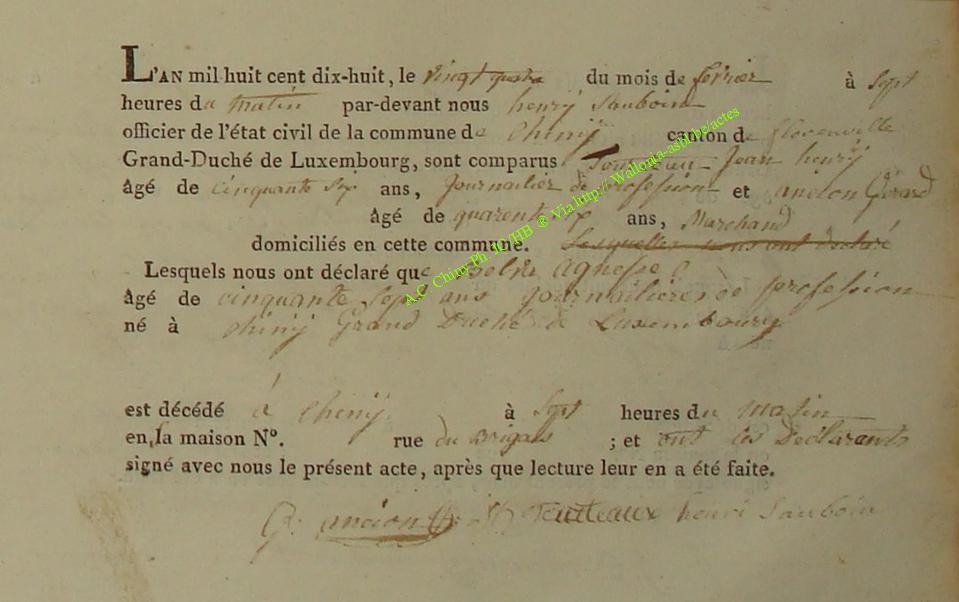 L'AN mil huit cent dix-huit, le vingt quatre du mois de fevrier à Sept
heures du matin par-devant nous henrÿ Sauboin
officier de l'état civil de la commune de Chinÿ canton de florenville
Grand-Duché de Luxembourg, sont comparus Jean henrÿ
âgé de cinquante Six ans, Journailier de profession et ancion Gérard
âgé de quarente ans, Marchand
domiciliés en cette commune. Lesquelles nous ont déclaré
Lesquels nous ont déclaré que agnesse
âgé de cinquante Sept ans journailières de profession
né à Chinÿ Grand Duché de Luxembourg
est décédé à Chinÿ à Sept heures du matin
en la maison N°. rue du ; et ont les Déclarants
signé avec nous le présent acte, après que lecture leur en a été faite.
G. ancion henri Sauboin
A.C Chiny Ph JL/HB ® Via http://Wallonia-asbl.be/actes